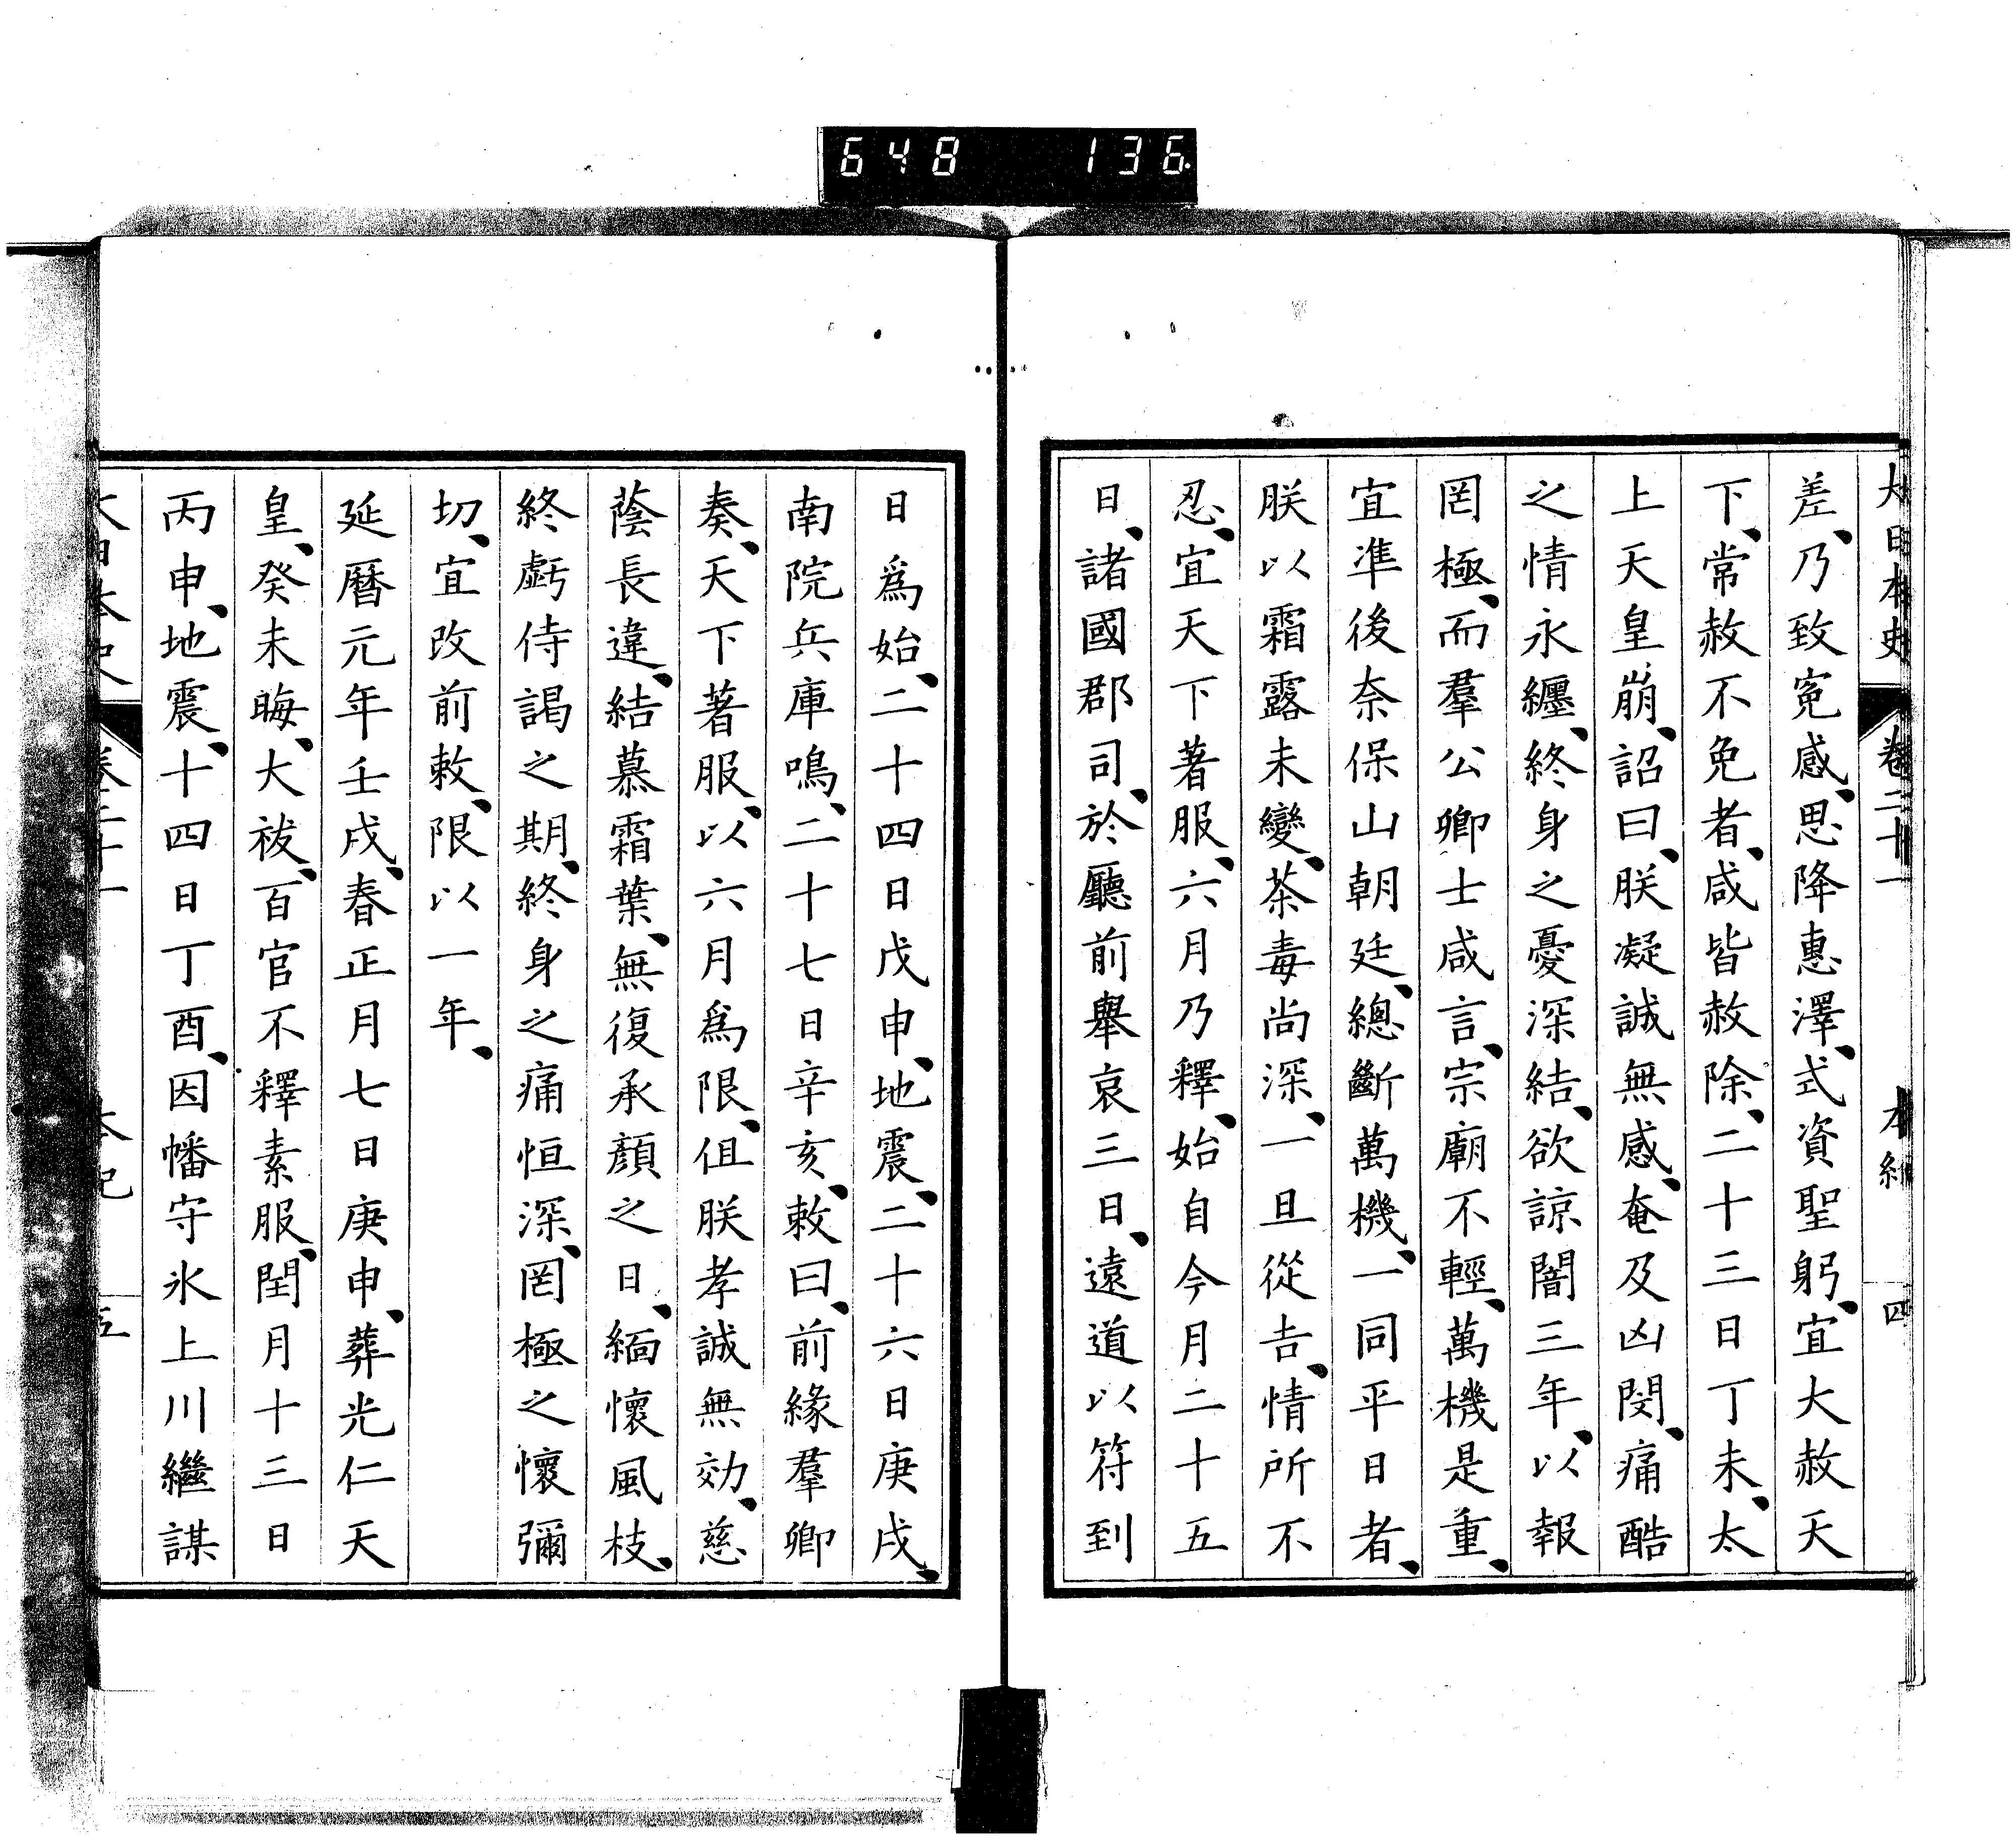 648 136
大日本史 卷二十一 本紀 四
差、乃致寃感、思降惠澤、式資聖躬、宜大赦天
下、常赦不免者、咸皆赦除、二十三日丁未、太
上天皇崩、詔曰、朕凝誠無感、奄及凶閔、痛酷
之情永纏、終身之憂深結、欲諒闇三年、以報
罔極、而羣公卿士咸言、宗廟不輕、萬機是重、
宜準後奈保山朝廷、總斷萬機、一同平日者、
朕以霜露未變、荼毒尚深、一旦從吉、情所不
忍、宜天下著服、六月乃釋、始自今月二十五
日、諸國郡司、於廳前舉哀三日、遠道以符到
日爲始、二十四日戊申、地震、二十六日庚戌、
南院兵庫鳴、二十七日辛亥、敕曰、前緣羣卿
奏、天下著服、以六月爲限、但朕孝誠無効、慈
蔭長違、結慕霜葉、無復承顏之日、緬懷風枝、
終虧侍謁之期、終身之痛恒深、罔極之懷彌
切、宜改前敕、限以一年、
延曆元年壬戌、春正月七日庚申、葬光仁天
皇、癸未晦、大祓、百官不釋素服、閏月十三日
丙申、地震、十四日丁酉、因幡守氷上川繼謀
大日本史 卷二十一 本紀 五